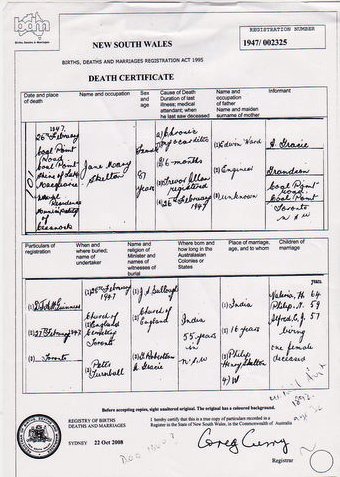 bdm
Births, Deaths and Marriages
REGISTRATION NUMBER
1947/002325
NEW SOUTH WALES
BIRTHS, DEATHS AND MARRIAGES REGISTRATION ACT 1995
DEATH CERTIFICATE
Date and place of death
Name and occupation
Sex and age
Cause of Death
Duration of last illness; medical attendant; when he last saw deceased
Name and occupation of father
Name and maiden surname of mother
Informant
1947
26th February
Coal Point
Road
Coal Point
Jane Mary
Skelton
87
years
(1) Chronic
Myocarditis
(2) 6 months
(3) Trevor Allan
registered
(4) 26th February
1947
(1) Edwin Ward
(2) Engineer
(3) unknown
A. Gracie
Grandson
Coal Point
Road
Coal Point
Toronto
N S W
Particulars of registration
When and where buried; name of undertaker
Name and religion of Minister and names of witnesses of burial
Where born and how long in the Australasian Colonies or States
Place of marriage, age, and to whom
Children of marriage
(2) 27th February 1947
(3) Toronto
(1) 26th February
1947
(2) Church of
England
Cemetery
Toronto
(3) Pettit
Turnbull
(2) Church of
England
(3) G. Robertson
A. Gracie
India
55 years
in
N S W
(1) India
(2) 16 years
(3) Philip
Henry Skelton
years
Valeria, H 64
Philip, N. 59
Alfred, C, J. 57
living
one female
deceased
Before accepting copies, sight unaltered original. The original has a coloured background.
REGISTRY OF BIRTHS
DEATHS AND MARRIAGES
SYDNEY 22 Oct 2008
I hereby certify that this is a true copy of particulars recorded in a
Register in the State of New South Wales, in the Commonwealth of Australia
Greg Curry
Registrar